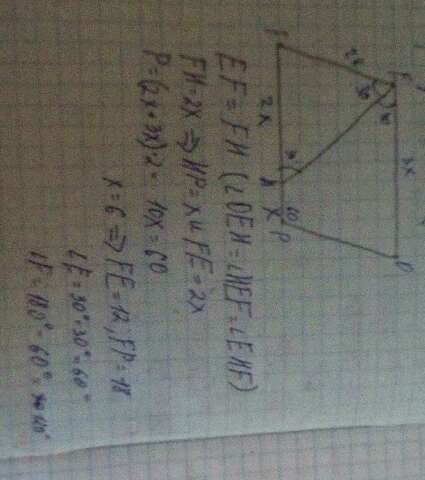 F
2x
E
30°
30
3x
O
2x
30
H
x
60
P
EF = FH (∠OEH = ∠HEF = ∠EHF)
FH = 2x ⇒ HP = x и FE = 2x
P = (2x + 3x)·2 = 10x = 60
x = 6 ⇒ FE = 12; FP = 18
∠E = 30° + 30° = 60°
∠F = 180° - 60° = 120°